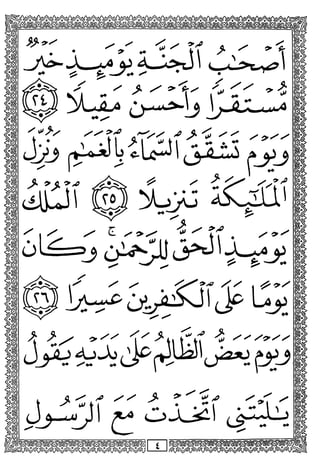 أَصْحَٰبُ ٱلْجَنَّةِ يَوْمَئِذٍ خَيْرٌ
مُّسْتَقَرًّا وَأَحْسَنُ مَقِيلًا ٢٤
وَيَوْمَ تَشَقَّقُ ٱلسَّمَآءُ بِٱلْغَمَٰمِ وَنُزِّلَ
ٱلْمَلَٰٓئِكَةُ تَنزِيلًا ٢٥ ٱلْمُلْكُ
يَوْمَئِذٍ ٱلْحَقُّ لِلرَّحْمَٰنِ ۚ وَكَانَ
يَوْمًا عَلَى ٱلْكَٰفِرِينَ عَسِيرًا ٢٦
وَيَوْمَ يَعَضُّ ٱلظَّالِمُ عَلَىٰ يَدَيْهِ يَقُولُ
يَٰلَيْتَنِى ٱتَّخَذْتُ مَعَ ٱلرَّسُولِ
٤